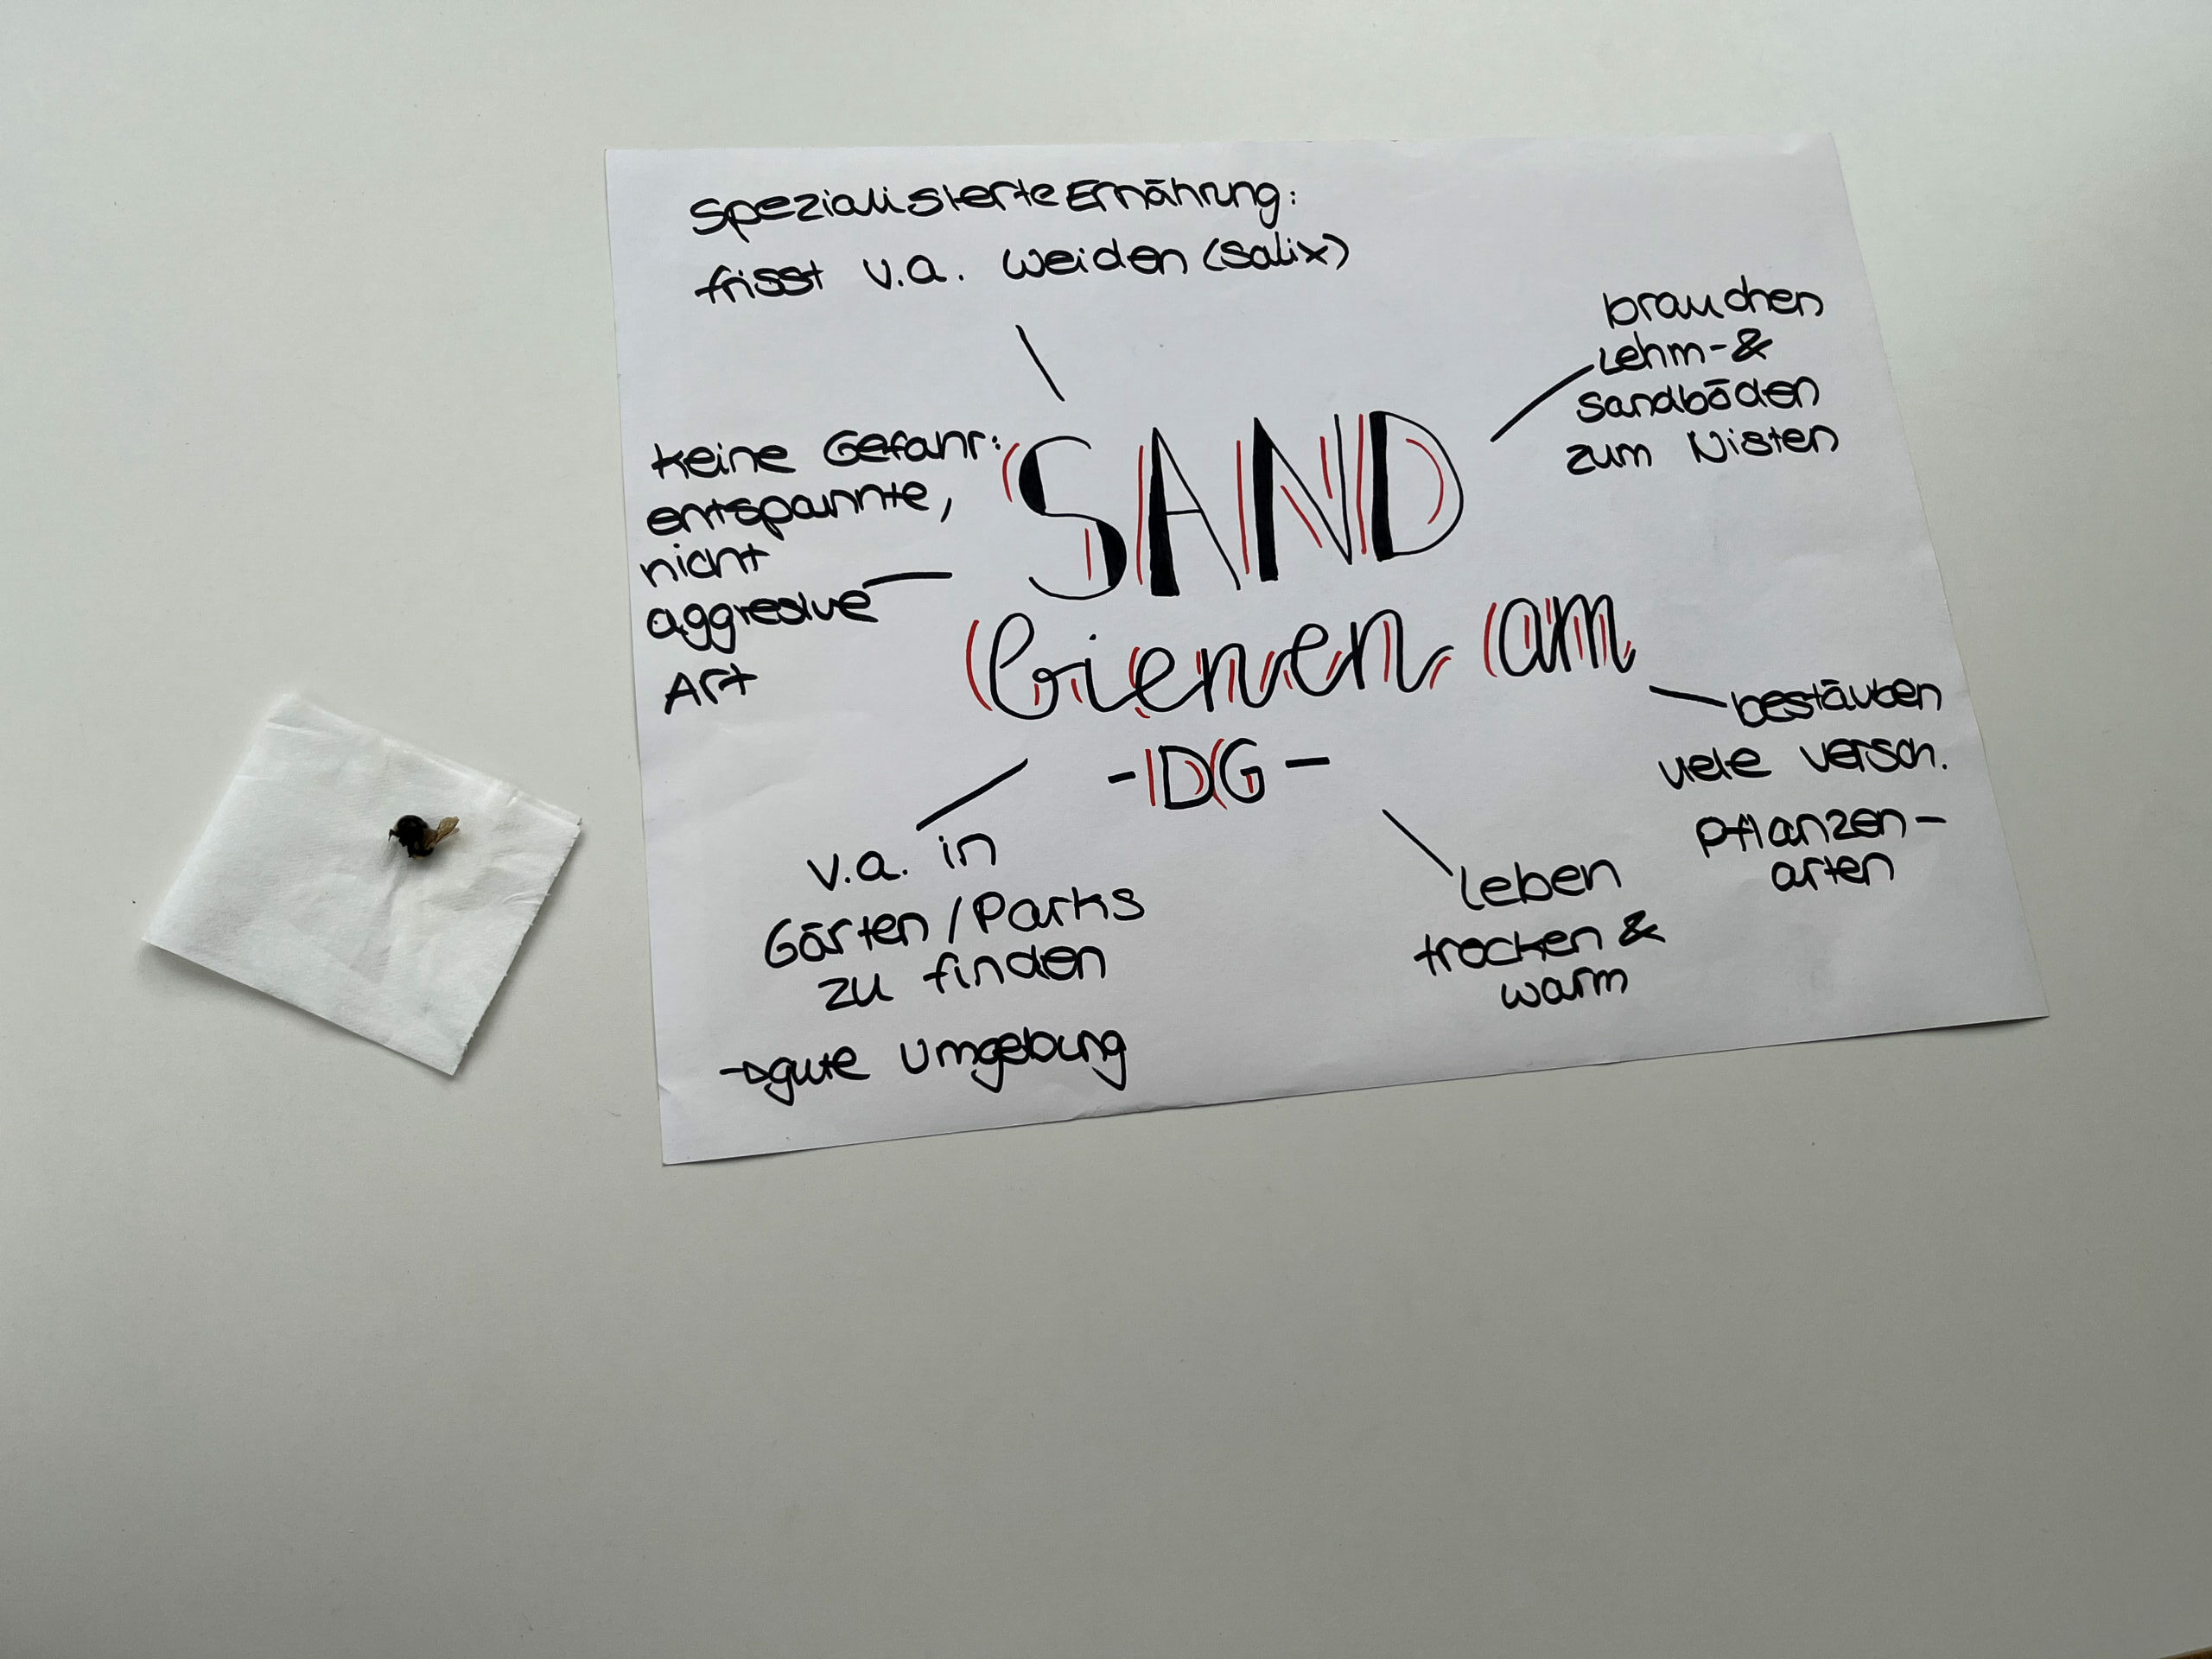 Spezialisierte Ernährung:
frisst v.a. Weiden (Salix)
brauchen
Lehm-&
Sandböden
zum Nisten
keine Gefahr:
entspannte,
nicht
aggresive
Art
SAND
bienen am
-DG-
bestäuben
viele versch.
Pflanzen-
arten
v.a. in
Gärten/Parks
zu finden
→gute Umgebung
leben
trocken &
warm